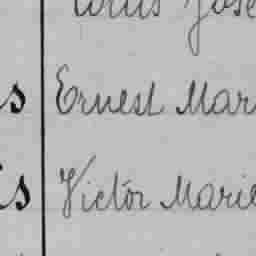 Louis Jose
s Ernest Mar
is Victor Marie